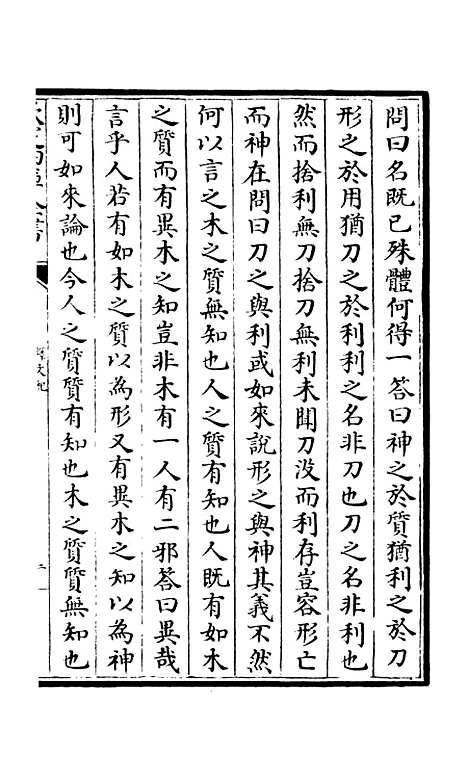 問曰名既已殊體何得一答曰神之於質猶利之於刀
形之於用猶刀之於利利之名非刀也刀之名非利也
然而捨利無刀捨刀無利未聞刀没而利存豈容形亡
而神在問曰刀之與利或如來說形之與神其義不然
何以言之木之質無知也人之質有知也人既有如木
之質而有異木之知豈非木有一人有二邪答曰異哉
言乎人若有如木之質以為形又有異木之知以為神
則可如來論也今人之質質有知也木之質質無知也
釋文紀